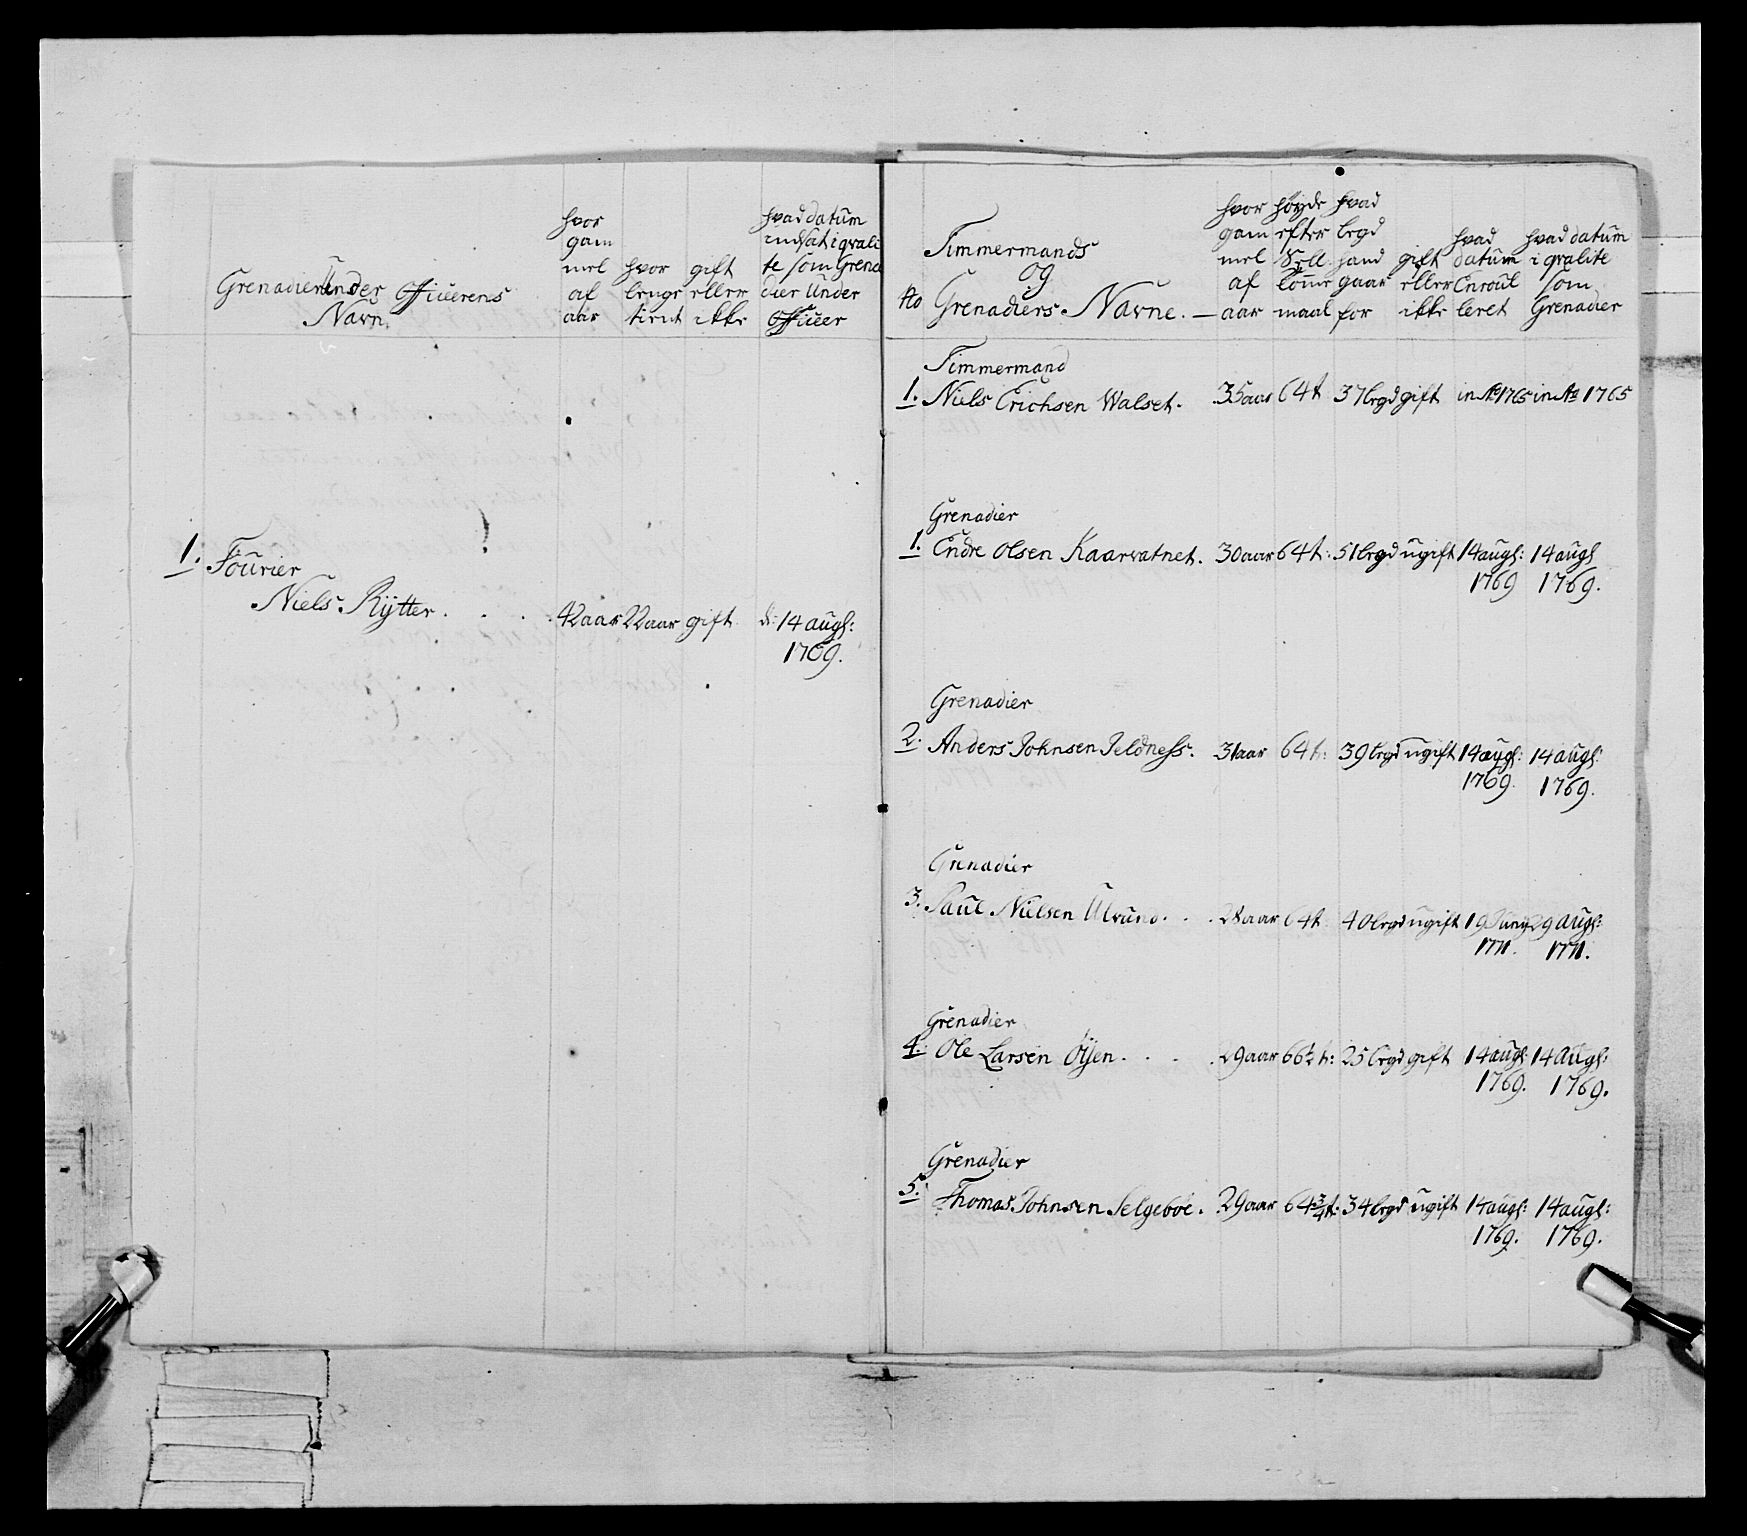 Grenadier Under Officerens
Navn.
hvor
gam
mel
af
aar
hvor
lenge
tient
gift
eller
ikke
hvad datum
indsat i qvali
te som Grena
dier Under
Officer
1. Fourier
Niels Rÿtter. 42 aar 22 aar gift d: 14 augs:
1769.
No
Timmermands
og
Grenadiers Navne.
hvor
gam
mel
af
aar
høyde
efter
Sell.
lomr
maal
hvad
legd
hand
gaar
for
gift
eller
ikke
hvad
datum
Enroul
leret
hvad datum
i qvalite
som
Grenadier
Timmermand
1. Niels Erichsen Walset. 35 aar 64 t 37 legd gift in Ao 1765 in Ao 1765
Grenadier
1. Endre Olsen Kaarvatnet. 30 aar 64 t: 51 legd ugift 14 augs: 14 augs
1769 1769.
Grenadier
2. Anders Johnsen Jeldness. 31 aar 64 t: 39 legd ugift 14 augs: 14 augs:
1769. 1769.
Grenadier
3. Paul Nielsen Ulvund. 28 aar 64 t 40 legd ugift 19 Juny 29 augs:
1771. 1771.
Grenadier
4. Ole Larsen Øÿen. 29 aar 66½ t: 25 legd gift 14 augs: 14 augs:
1769. 1769.
Grenadier
5. Thomas Johnsen Selgeboe. 29 aar 64¾ t: 34 legd ugift 14 augs: 14 augs:
1769. 1769.